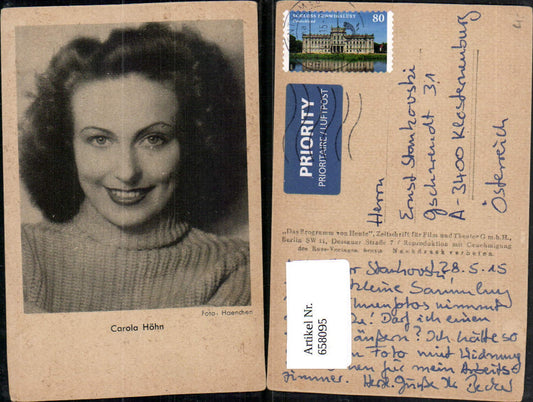 Foto: Haenchen
Carola Höhn
SCHLOSS LUDWIGSLUST
Deutschland
80
PRIORITY
PRIORITAIRE/LUFTPOST
Herrn
Ernst Stankovski
31
A-3400 Klosterneuburg
Österreich
„Das Programm von Heute", Zeitschrift für Film und Theater G. m. b. H.,
Berlin SW 11, Dessauer Straße 7 / Reproduktion mit Genehmigung
des Ross-Verlages, Nachdruck verboten.
Artikel Nr.
658095
Stankovski 28.5.15
kleine Sammlung
nimmt
Darf ich einen
äußern? Ich hätte so
Foto mit Widmung
für mein Arbeits
zimmer. Herzl. Grüße